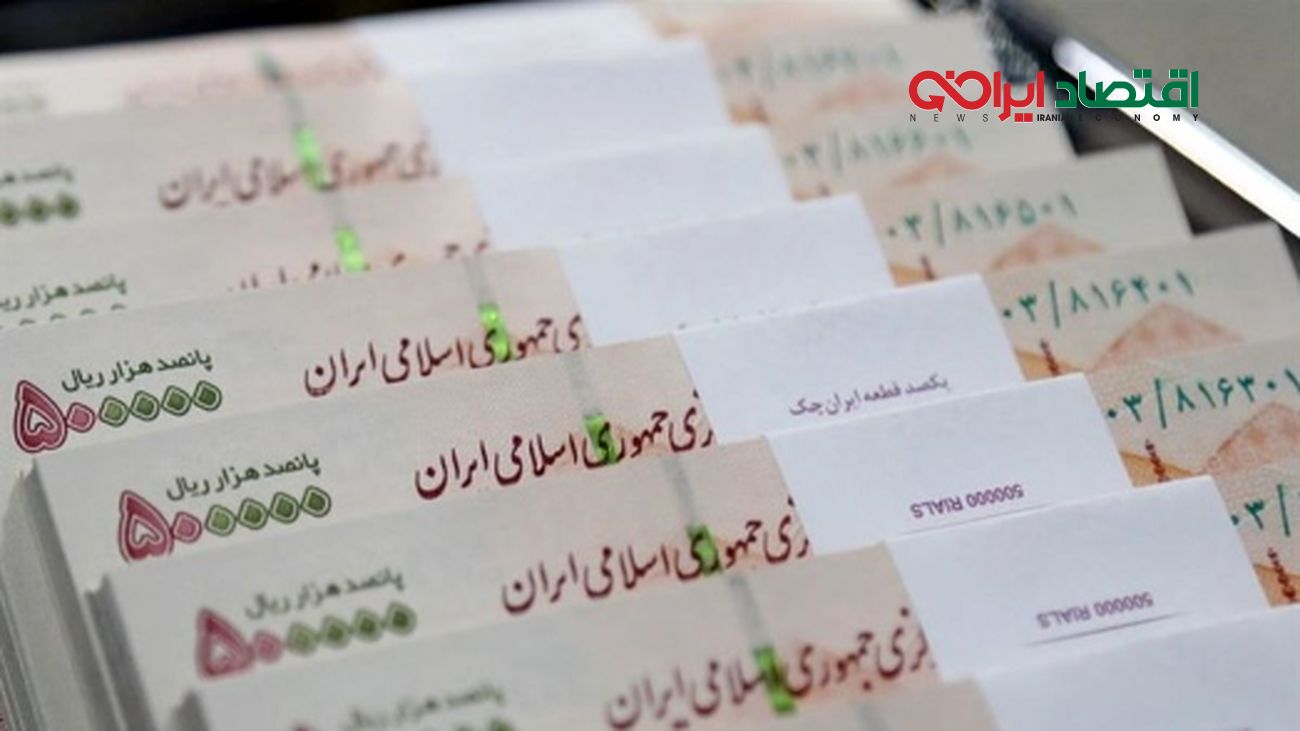 اقتصاد ایرانی
NEWS IRANIAN ECONOMY
جمهوری اسلامی ایران
پانصد هزار ریال
۰۳/۸۱۶۵۰۱
پانصد هزار ریال
۵۰۰۰۰۰
زی جمهوری اسلامی ایران
یکصد قطعه ایران چک
۰۳/۸۱۶۴۰۱
پانصد هزار ریال
۵۰۰۰۰۰
زی جمهوری اسلامی ایران
500000 RIALS
۰۳/۸۱۶۳۰۱
پانصد هزار ریال
۵۰۰۰۰۰
زی جمهوری اسلامی ایران
500000 RIALS
۰۳/
پانصد هزار ریال
زی جمهوری اسلامی ایران